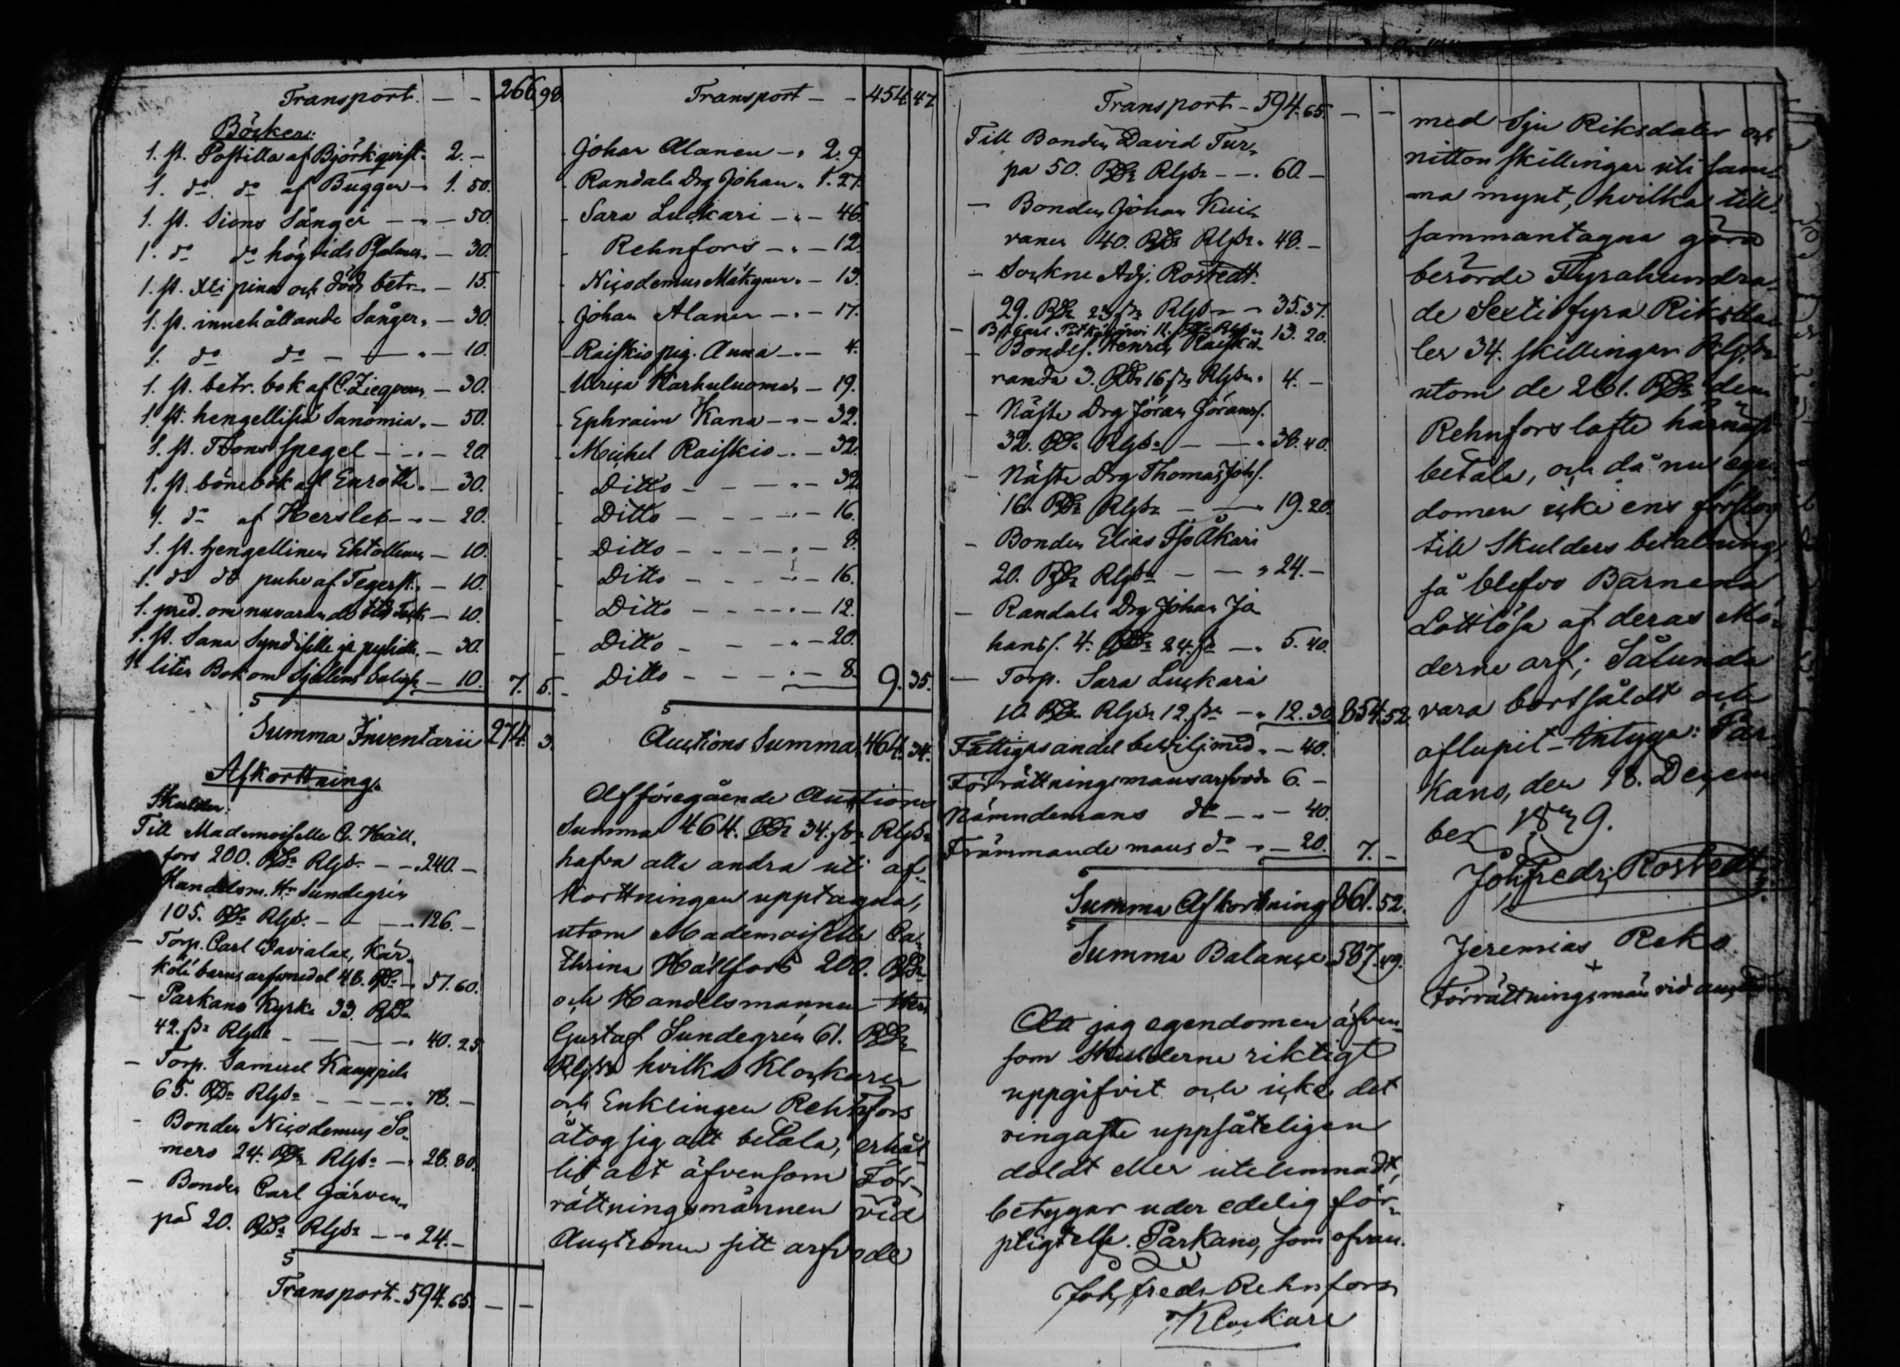 Transport. — — 266 98.
Böcker:
1. st. Postilla af Björkqvist. 2. —
1. do do af Bugger — 1. 50.
1. st. Sions Sånger — — 50
1. do do högtids Psalmer. — 30.
1. st. Xti pina och död betr. — 15.
1. st. innehållande Sånger. — 30.
1. do do — — — 10.
1. st. betr. bok af C. — 30.
1. st. hengellisiä Sanomia. — 50.
1. st. Spegel — — 20.
1. st. bönebok af — 30.
1. do af Herslet — — 20.
1. st. hengellinen — 10.
1. do do puhe af — 10.
1. pred. om nuvarande tids — 10.
1. st. Sana — 30.
1. liten Bok om Själens — 10. 7. 5.
Summa Inventarii 274. 3.
Afkorttning.
Skulder:
Till Mademoiselle C. Häll,
fors 200. RDr Rgs — — 240. —
Handelsm. Hr Sundegrén
105. RDr Rgs. — — 126. —
— Torp. Carl Davialas, Kär,
koti barns arfsmedel 48. RDr — 57. 60.
— Parkano Kyrka 33. RDr
42. sk Rgs — — — 40. 25
— Torp. Samuel Kauppila
65. RDr Rgs — — — 78. —
— Bonden Nicodemus So-
mero 24. RDr Rgs — 28. 80.
— Bonden Carl Järven,
pä 20. RDr Rgs — — 24. —
Transport. 594. 65. — —
Transport — — 454 47
Johan Alanen — 2. 9
Randals Drg Johan. 1. 27.
Sara Luckari — — 46
Rehnfors — — 12.
Nicodemus — 13.
Johan Alanen — 17.
Raiskio pig. Anna — 4.
Ulrica Karhuluoma — 19.
Ephraim Kana — — 32.
Michel Raiskio — 32.
Ditto — — — 32
Ditto — — — 16.
Ditto — — — 8.
Ditto — — — 16.
Ditto — — — 12.
Ditto — — — 20.
Ditto — — — 8. 9. 35.
Auctions Summa, 464. 34.
Af föregående Auctions
Summa 464. RDr 34. sk Rgs
hafva alla andra uti af-
korttningen upptagna,
utom Mademoiselle Ca-
thrina Hällfors 200. RDr
och Handelsmannen Herr
Gustaf Sundegrén 61. RDr
Rgs hvilka Klockaren
och Enklingen Rehnfors
åtog sig att betala, erhål-
lit alt äfvensom För-
rättningsmännen vid
Auctionen sitt arfvode
Transport — 594. 65. — —
Till Bonden David Tur,
pa 50. RDr Rgs — — 60 —
— Bonden Johan Kui,
vanen 40. RDr Rgs. 48. —
— Sockne Adj. Rostedt.
29. RDr 23 sk Rgs — — 35. 37.
— B. Carl 11. RDr Rgs 13. 20.
— Bondes. Henric Raiskio
randa 3. RDr 16 sk Rgs. 4. —
— Näste Drg Jöran Jörans.
32. RDr Rgs — — 38. 40.
— Näste Drg Thomas Joh.
16. RDr Rgs — — 19. 20
— Bonden Elias
20. RDr Rgs — — 24. —
— Randals Drg Johan Jo
hans. 4. RDr 24. sk — 5. 40.
— Torp. Sara Luckari
10. RDr Rgs 12. sk — 12. 30 854. 52
Fattigas andel med. — 40.
Förrättningsmans arfvode 6. —
Nämndemans do — — 40.
Främmande mans do — — 20. 7. —
Summa Afkorttning 861. 52.
Summa Balance 587. 49.
Att jag egendomen äfven-
som Skulderne riktigt
uppgifvit och icke det
ringaste uppsåteligen
doldt eller utelemnadt,
betygar under edelig för-
pligtelse. Parkano, som ofvan.
Joh. Fredr. Rehnfors
Klockare
med Sju Riksdaler och
nitton skillingar uti sam-
ma mynt, hvilka till-
sammantagna göra
berörde Fyrahundra-
de Sextifyra Riksda-
ler 34. skillingar Rgs
utom de 261. RDr dem
Rehnfors lofte härnäst
betala, och då nu egen-
domen icke ens förslog
till Skulders betalning,
så blefvo Barnena
Lottlösa af deras Mo-
derne arf; Sålunda
vara bortsåldt och
aflupit — Intyga: Par-
kano, den 18. Decem-
ber 1829.
Joh. Fredr. Rostedt
Jeremias Reko.
+
Förrättningsmän vid auctionen